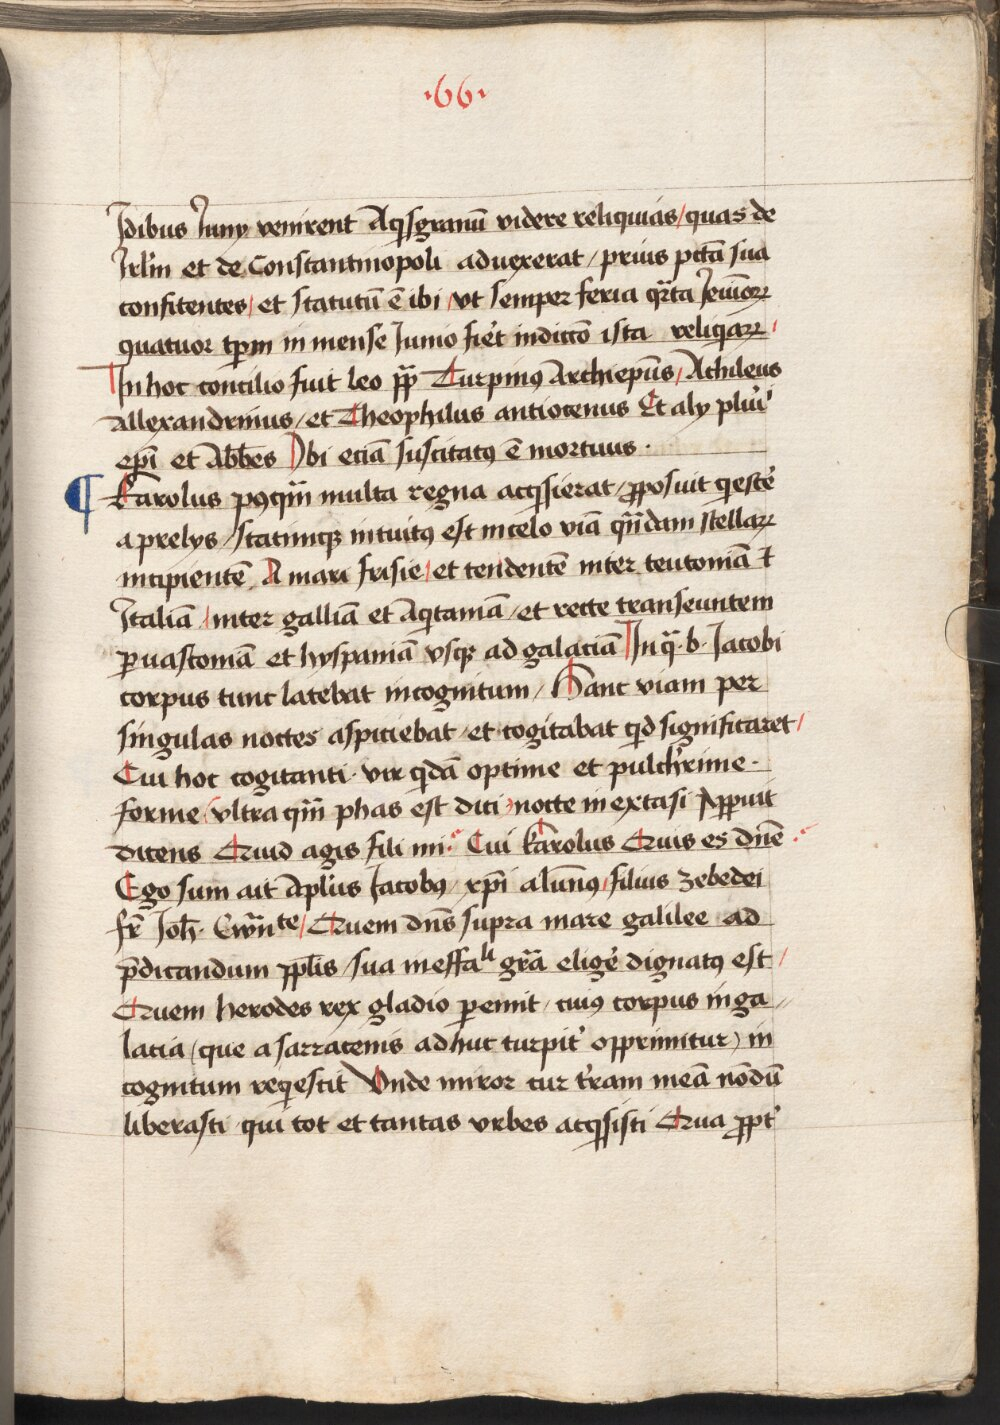 ·66·
Idibus Iuny venirent Aqsgranū videre reliquias / quas de
Irlm̄ et de Constantinopoli aduexerat / prius pctā sua
confitentes / et statutū ē ibi / vt semper feria qrta Ieiuiorꝝ
quatuor tp̄rm in mense Iunio fiet indictō ista reliqarꝝ /
In hoc concilio fuit leo pp̄ Turpinꝰ Archiepūs / Achileus
allexandrinus / et Theophilus antiocenus Et aly plurī
ep̄i et Abb̄es Vbi eciā suscitatꝰ ē mortuus ·
¶ Karolus pꝰqm̄ multa regna acqsierat / ꝓposuit qescē
a prelys / statimqꝫ intuitꝰ est in celo viā qn̄dam stellarꝝ
incipientē A mari frisie / et tendentē inter teutoniā ⁊
Italiā / inter galliā et Aqtaniā / et recte transeuntem
ꝑ uasconiā et hyspaniā vsqꝫ ad galaciā In q̄ · b · Iacobi
corpus tunc latebat incognitum / Hanc viam per
singulas noctes aspiciebat et cogitabat qd significaret /
Cui hoc cogitanti · vir qdā optime et pulchrime ·
forme / vltra qm̄ phas est dici / nocte in extasi Apparuit
dicens Quid agis fili mi · Cui karolus Quis es dn̄e ·
Ego sum ait Apl̄us Iacobꝰ / xp̄i alūnꝰ / filius zebedei
fr̄ Ioh̄ · Ewn̄te / Quem dn̄s supra mare galilee ad
p̄dicandum ppl̄is / sua ineffali gr̄a eligē dignatꝰ est /
Quem herodes rex gladio ꝑemit / cuiꝰ corpus in ga //
lacia / que a sarracenis adhuc turpit' opprimitur ) in
cognitum reqescit Vnde miror cur tr̄am meā nōdū
liberasti qui tot et tantas vrbes acqsisti Qua ꝓpt'